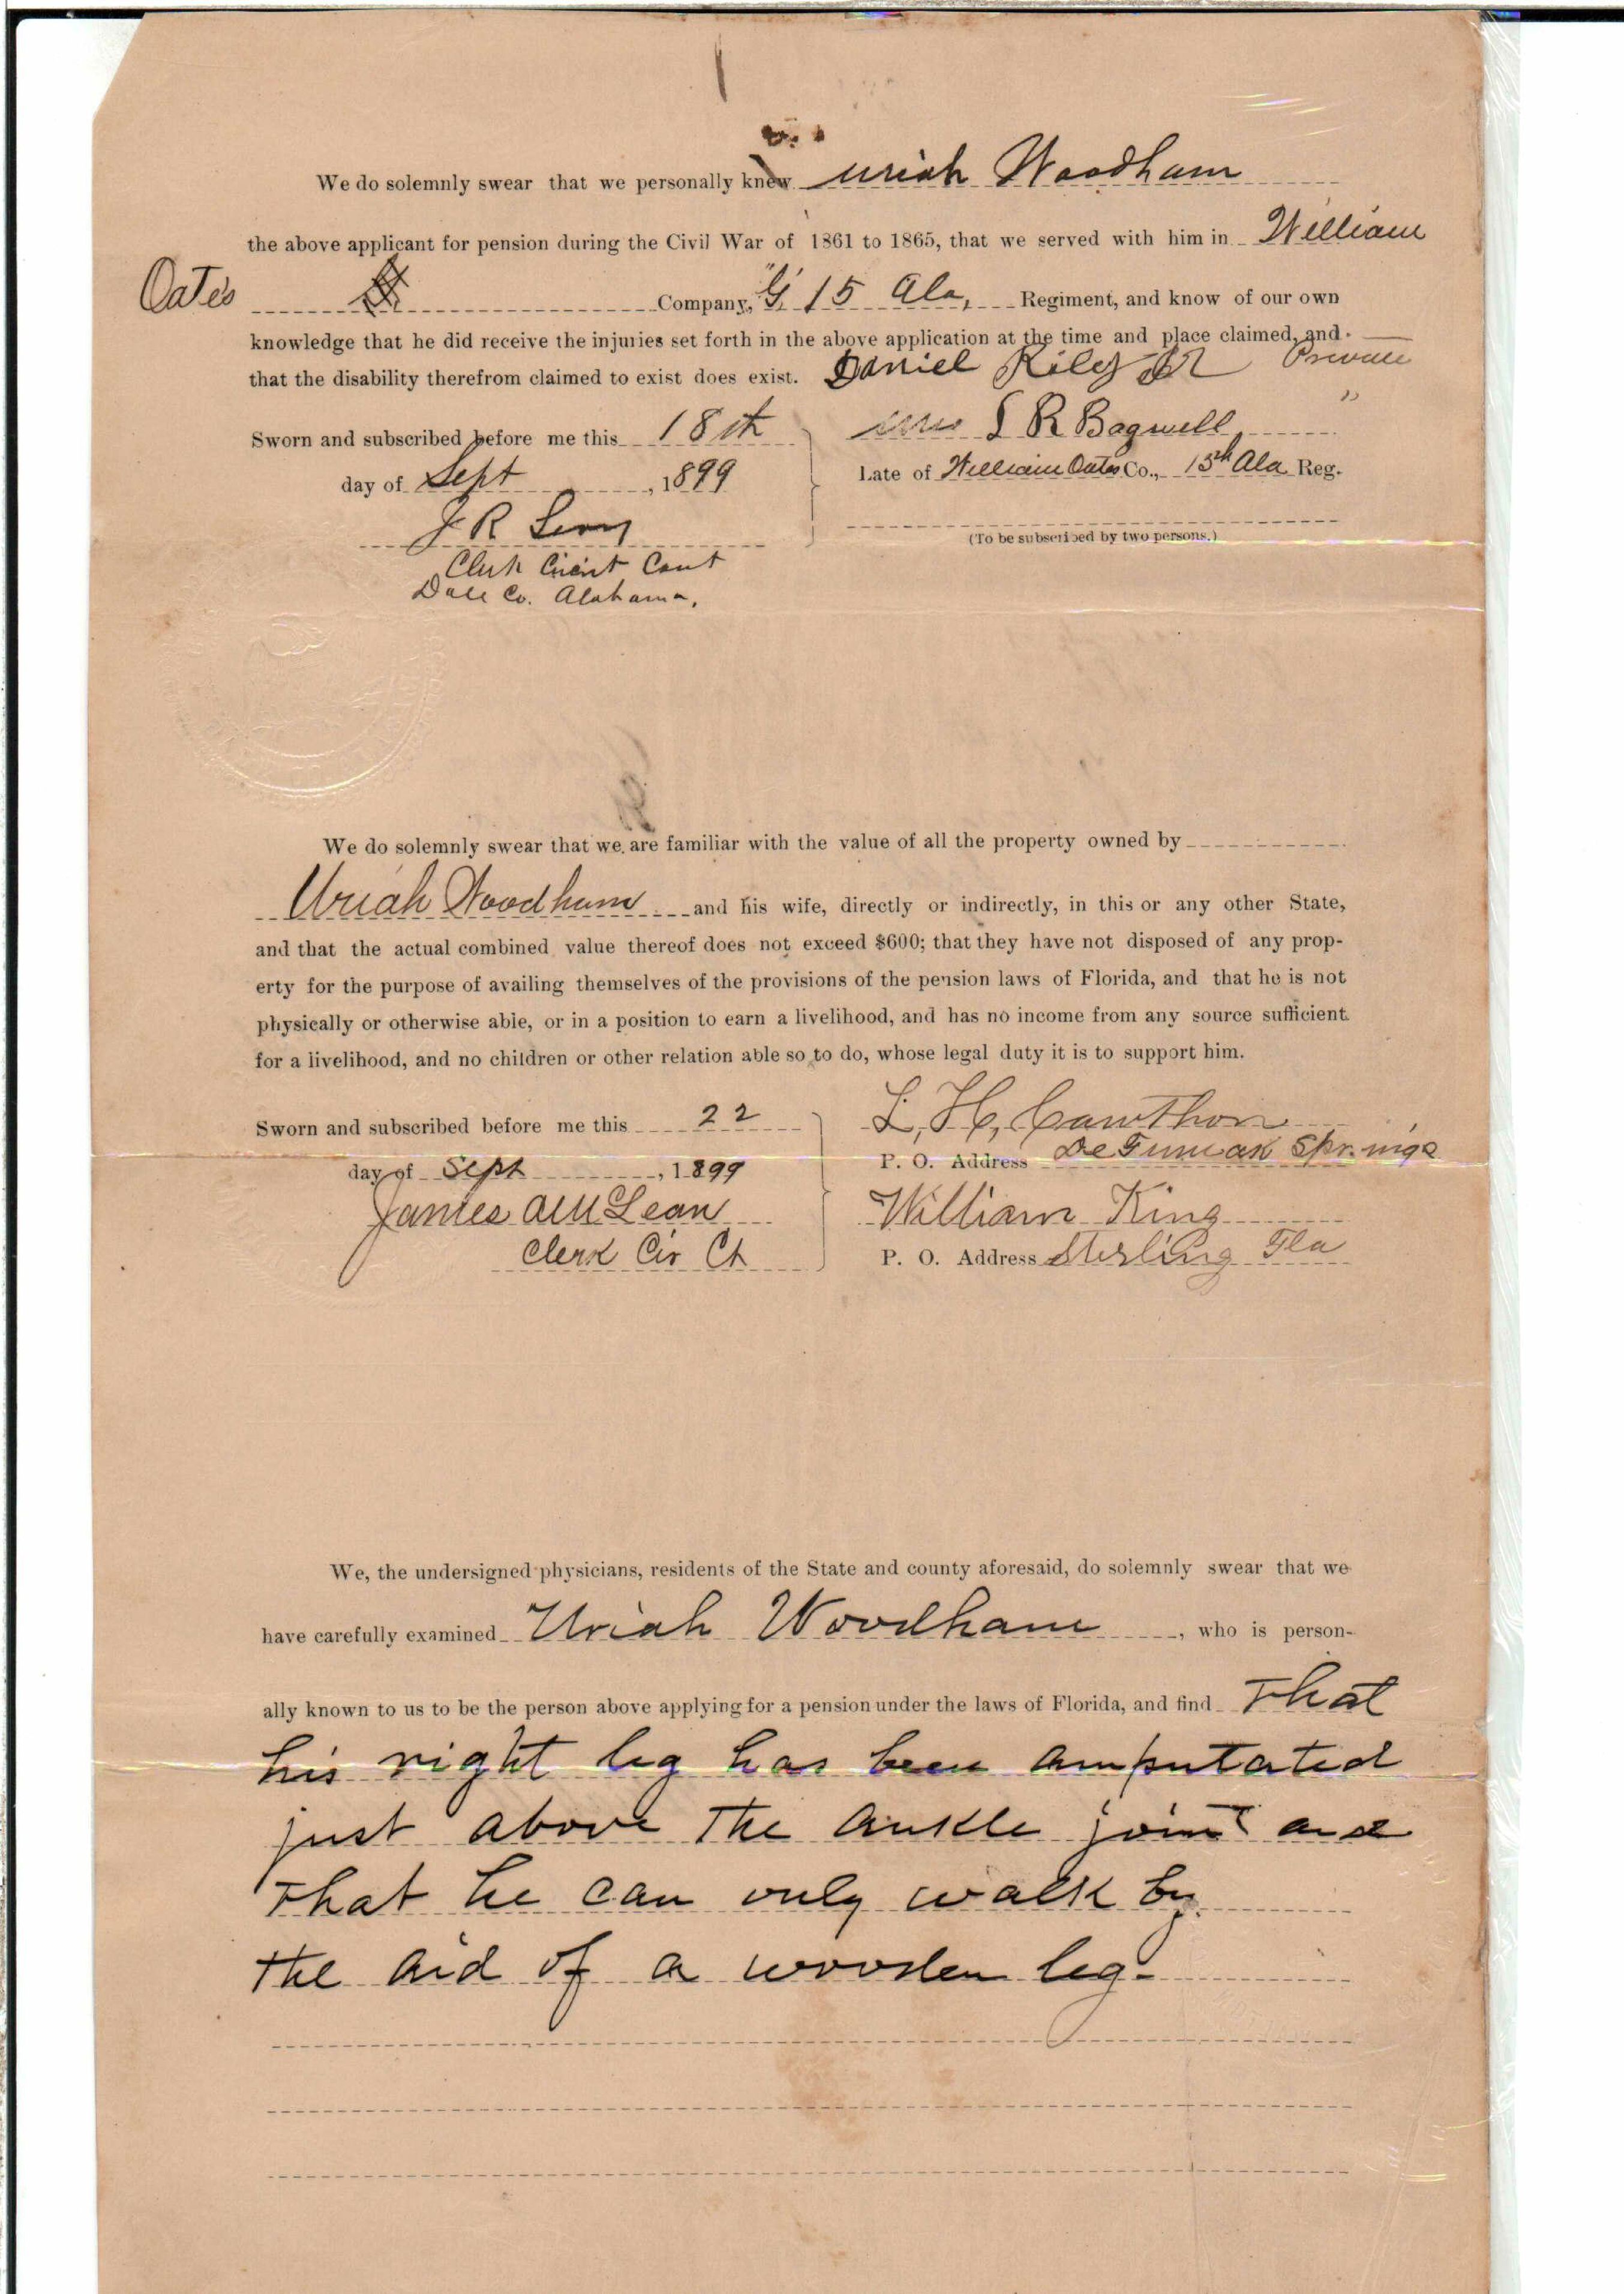 We do solemnly swear that we personally knew Uriah Woodham
the above applicant for pension during the Civil War of 1861 to 1865, that we served with him in William
Oates Company, "G" 15 Ala, Regiment, and know of our own
knowledge that he did receive the injuries set forth in the above application at the time and place claimed, and
that the disability therefrom claimed to exist does exist. Daniel Riley Private
Sworn and subscribed before me this 18th R Bagwell "
day of Sept, 1899 Late of William Oates Co., 15th Ala Reg.
J R
(To be subscribed by two persons.)
Clerk Circuit Court
Dale Co. Alabama,
We do solemnly swear that we are familiar with the value of all the property owned by
Uriah Woodham and his wife, directly or indirectly, in this or any other State,
and that the actual combined value thereof does not exceed $600; that they have not disposed of any prop-
erty for the purpose of availing themselves of the provisions of the pension laws of Florida, and that he is not
physically or otherwise able, or in a position to earn a livelihood, and has no income from any source sufficient
for a livelihood, and no children or other relation able so to do, whose legal duty it is to support him.
Sworn and subscribed before me this 22 L, H, Cawthon
day of Sept, 1899 P. O. Address DeFuniak Springs
James A McLean William King
Clerk Cir Ct P. O. Address Sterling Fla
We, the undersigned physicians, residents of the State and county aforesaid, do solemnly swear that we
have carefully examined Uriah Woodham, who is person-
ally known to us to be the person above applying for a pension under the laws of Florida, and find That
his right leg has been amputated
just above The ankle joint and
That he can only walk by
the aid of a wooden leg-